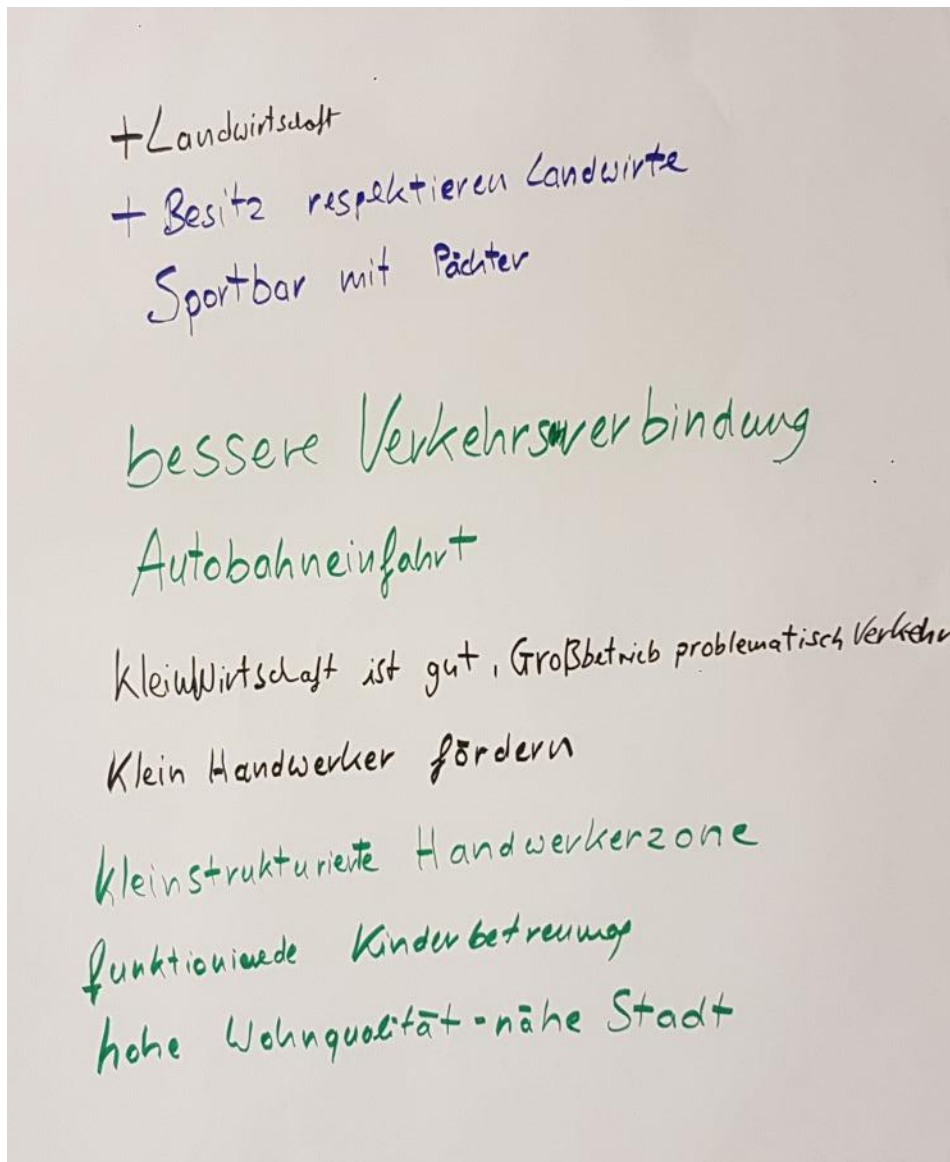 +Landwirtschaft
+ Besitz respektieren Landwirte
Sportbar mit Pächter
bessere Verkehrsverbindung
Autobahneinfahrt
KleinWirtschaft ist gut, Großbetrieb problematisch Verkehr
Klein Handwerker fördern
kleinstrukturierte Handwerkerzone
funktionierede Kinderbetreuung
hohe Wohnqualität - nähe Stadt